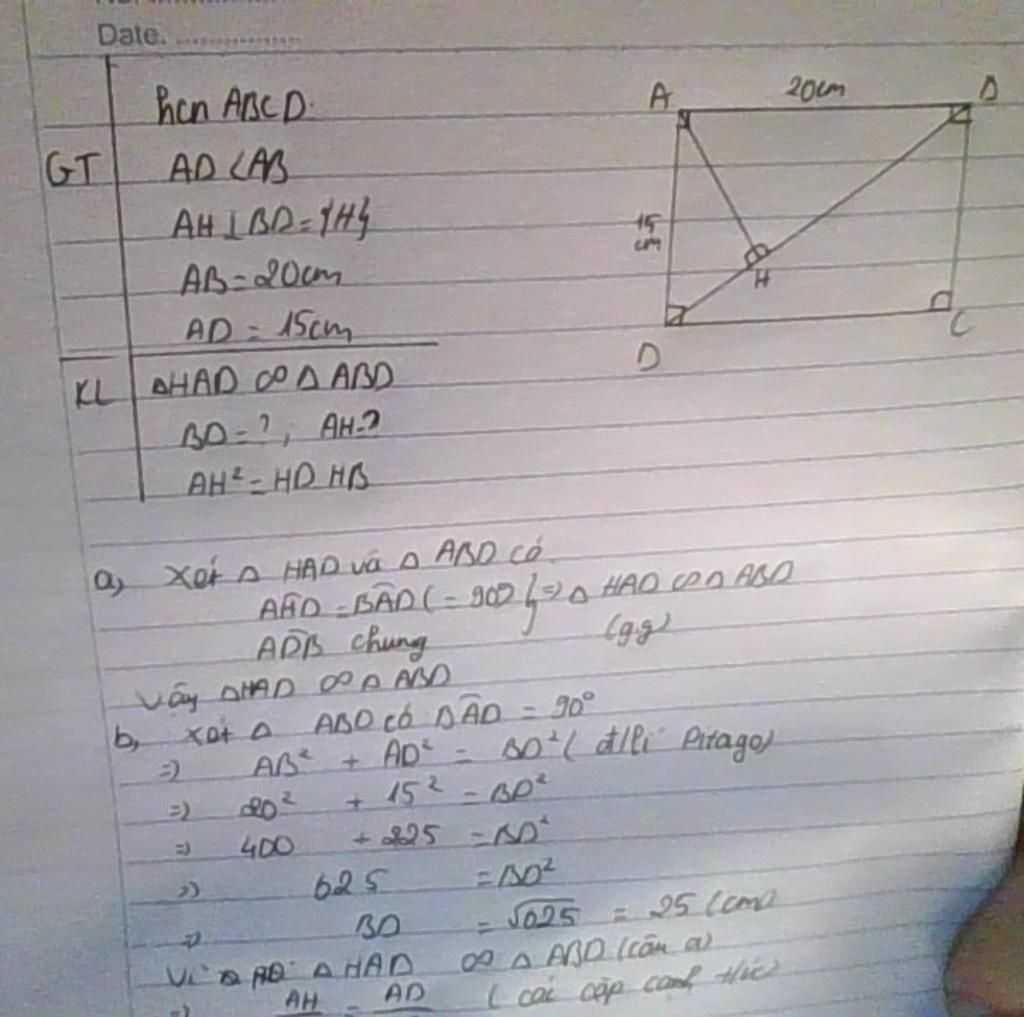 Date.
hcn ABCD.
GT
AD < AB
AH ⊥ BD = {H}
AB = 20cm
AD = 15cm
KL
ΔHAD ∽ Δ ABD
BD = ?, AH = ?
AH² = HD HB
A
20cm
15
cm
H
D
C
a, Xét Δ HAD và Δ ABD có
AĤD = BÂD (= 90°) } => Δ HAD ∽ Δ ABD
AD̂B chung
(gg)
Vậy ΔHAD ∽ Δ ABD
b, Xét Δ ABD có BÂD = 90°
=) AB² + AD² = BD² ( đ/lí Pitago)
=) 20² + 15² = BD²
=) 400 + 225 = BD²
=) 625 = BD²
=) BD = √625 = 25 (cm)
Vì Δ HAD ∽ Δ ABD (câu a)
=) AH = AD ( các cặp cạnh